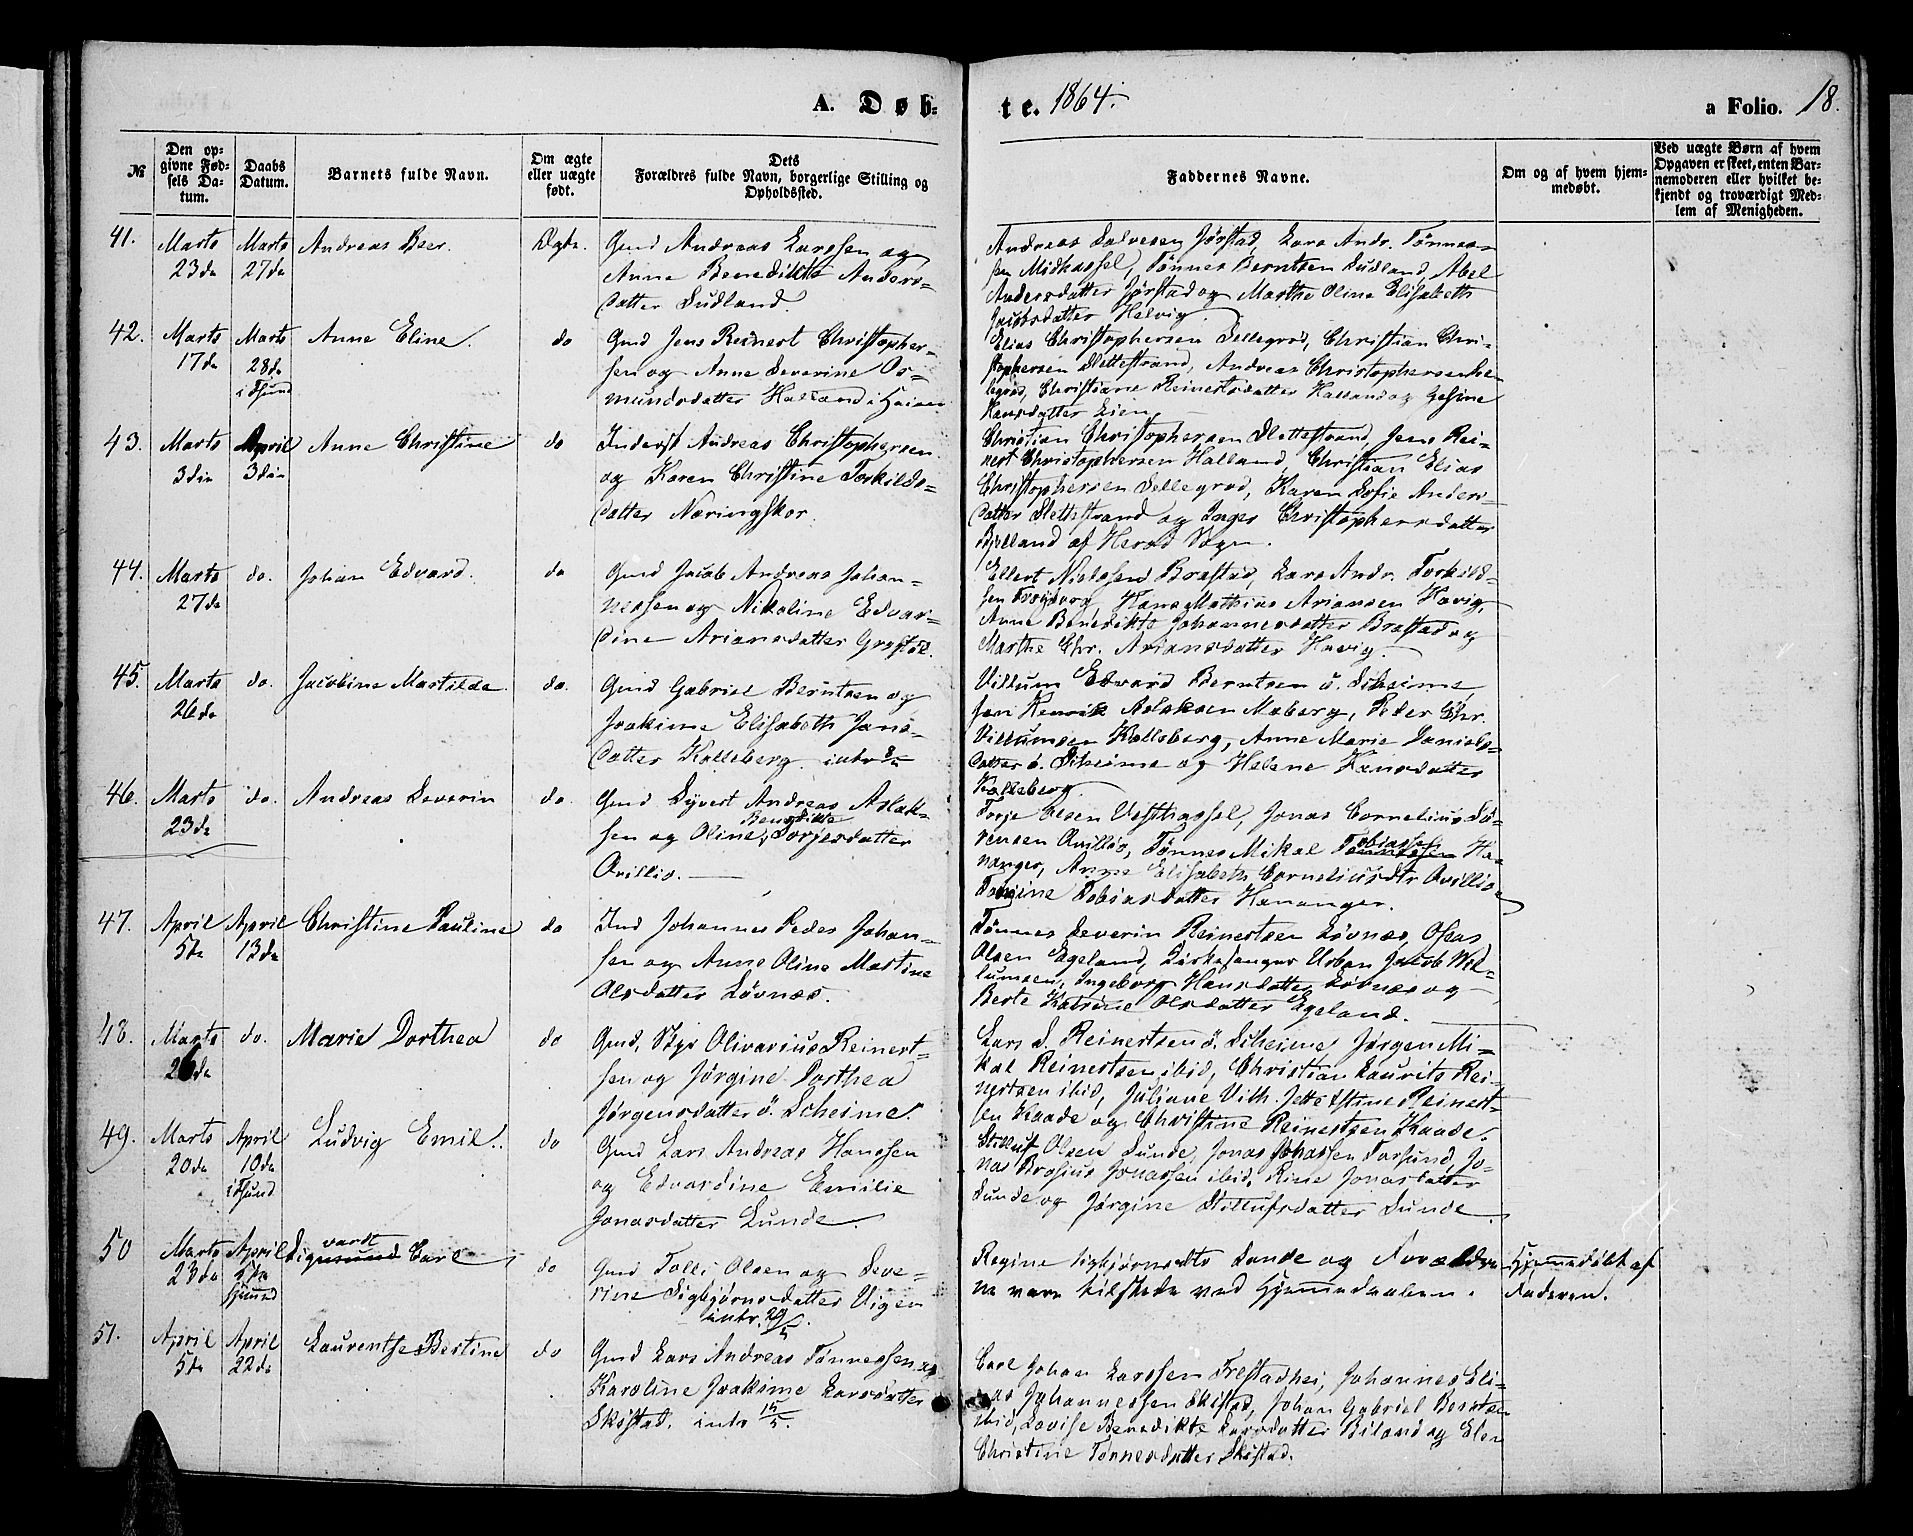 A. Døb-
te. 1864.
a Folio. 18.
№
Den op-
givne Fød-
sels Da-
tum.
Daabs
Datum.
Barnets fulde Navn.
Om ægte
eller uægte
født.
Dets
Forældres fulde Navn, borgerlige Stilling og
Opholdssted.
Faddernes Navne.
Om og af hvem hjem-
medøbt.
Ved uægte Børn af hvem
Opgaven er skeet, enten Bar-
nemoderen eller hvilket be-
kjendt og troværdigt Med-
lem af Menigheden.
41.
Marts
23de
Marts
27de
Andreas Beer.
Ægte.
Gmd Andreas Larssen og
Anne Benedikte Anders-
datter Sudland.
Andreas Salvesen Jørstad, Lars Andr. Tønnes-
sen Midhassel, Tønnes Berntsen Sudland, Abel
Andersdatter Jørstad og Marthe Oline Elisabeth
Jacobsdatter Helvig.
42.
Marts
17de
Marts
28de
i Fsund
Anne Eline.
do
Gmd Jens Reinert Christopher-
sen og Anne Severine Os-
mundsdatter Halland i
Elias Christophersen Sellegrod, Christian Chri-
stophersen Slettestrand, Andreas Christophersen
Christiane Reinertsdatter Halland og Gesine
Hansdatter Lien.
43.
Marts
3die
April
3die
Anne Christine
do
Inderst Andreas Christophersen
og Karen Christine Torkilds-
datter Næringskor.
Christian Christophersen Slettestrand, Jens Rei-
nert Christophersen Halland, Christian Elias
Christophersen Sellegrod, Karen Sofie Anders-
datter Slettestrand og Inger Christophersdatter
af Herad Sogn.
44.
Marts
27de
do.
Johan Edvard.
do
Gmd Jacob Andreas Johan-
nessen og Nikoline Edvar-
dine Ariansdatter Grostøl.
Ellert Nielssen Brastad, Lars Andr. Torkild-
sen Hans Mathias Ariansen Havig,
Anne Benedikte Johannesdatter Brastad og
Marthe Chr. Ariansdatter Havig.
45.
Marts
26de
do.
Jacobine Mathilde.
do.
Gmd Gabriel Berntsen og
Joakime Elisabeth Jans-
datter Kalleberg. intr
Villum Edvard Berntsen ö. Skeime,
Jan Henrik Aslaksen Maberg, Peder Chr.
Villumsen Kalleberg, Anne Marie Daniels-
datter ö. Skeime og Helene Hansdatter
Kalleberg.
46.
Marts
23de
do.
Andreas Severin
do.
Gmd Syvert Andreas Aslak-
sen og Oline Benedikte Torjersdatter
Qvillio.
Torje Olsen Vesthassel, Jonas Cornelius Sø-
rensen Qvillio, Tønnes Mikal Tobiassen Ha-
nanger, Anne Elisabeth Corneliusdtr Qvillio
Tobiasdatter Hananger.
47.
April
5te
April
13de
Christine Pauline
do
Ind Johannes Peder Johan-
sen og Anne Oline Martine
Olsdatter Løvnæs.
Tønnes Severin Reinertsen Løvnæs,
Olsen Egeland, Kirkesanger Urban Jacob Wil-
lumsen, Ingeborg Hansdatter Løvnæs og
Berte Katrine Olsdatter Egeland.
48.
Marts
26de
do.
Marie Dorthea
do
Gmd, Olivarius Reinert-
sen og Jørgine Dorthea
Jørgensdatter ö. Scheime.
Lars S. Reinertsen ö. Skeime Jørgen Mi-
kal Reinertsen ibid, Christian Laurits Rei-
nertsen ibid, Juliane Vilh. Reinert-
sen Kaade og Christine Reinertsen Kaade.
49.
Marts
20de
April
10de
i Fsund
Ludvig Emil.
do
Gmd Lars Andreas Hanssen
og Edvardine Emilie
Jonasdatter Lunde.
Olsen Lunde, Jonas Johassen Farsund, Jo-
nas Brosius Jonassen ibid, Rine Jonasdatter
Lunde og Jørgine Stillufsdatter Lunde.
50
Marts
23de
April
5te
hjmmd
Sigvardt Carl
do
Gmd Tolli Olsen og Seve-
rine Sigbjørnsdatter Vigen
intr. 29/5.
Regine Sigbjørnsdtr Lande og Forældre-
ne vare tilstede ved Hjemmedaaben.
Hjemmedøbt af
Faderen.
51.
April
5te
April
22de
Laurentse Bertine
do
Gmd Lars Andreas Tønnessen og
Karoline Joakime Larsdatter
Skøstad. intr 15/5.
Carl Johan Larssen Trestadhei, Johannes Eli-
as Johannessen Skøstad, Johan Gabriel Berntsen
ibid, Lovise Benedikte Larsdatter Biland og Elen
Christine Tønnesdatter Skøstad.